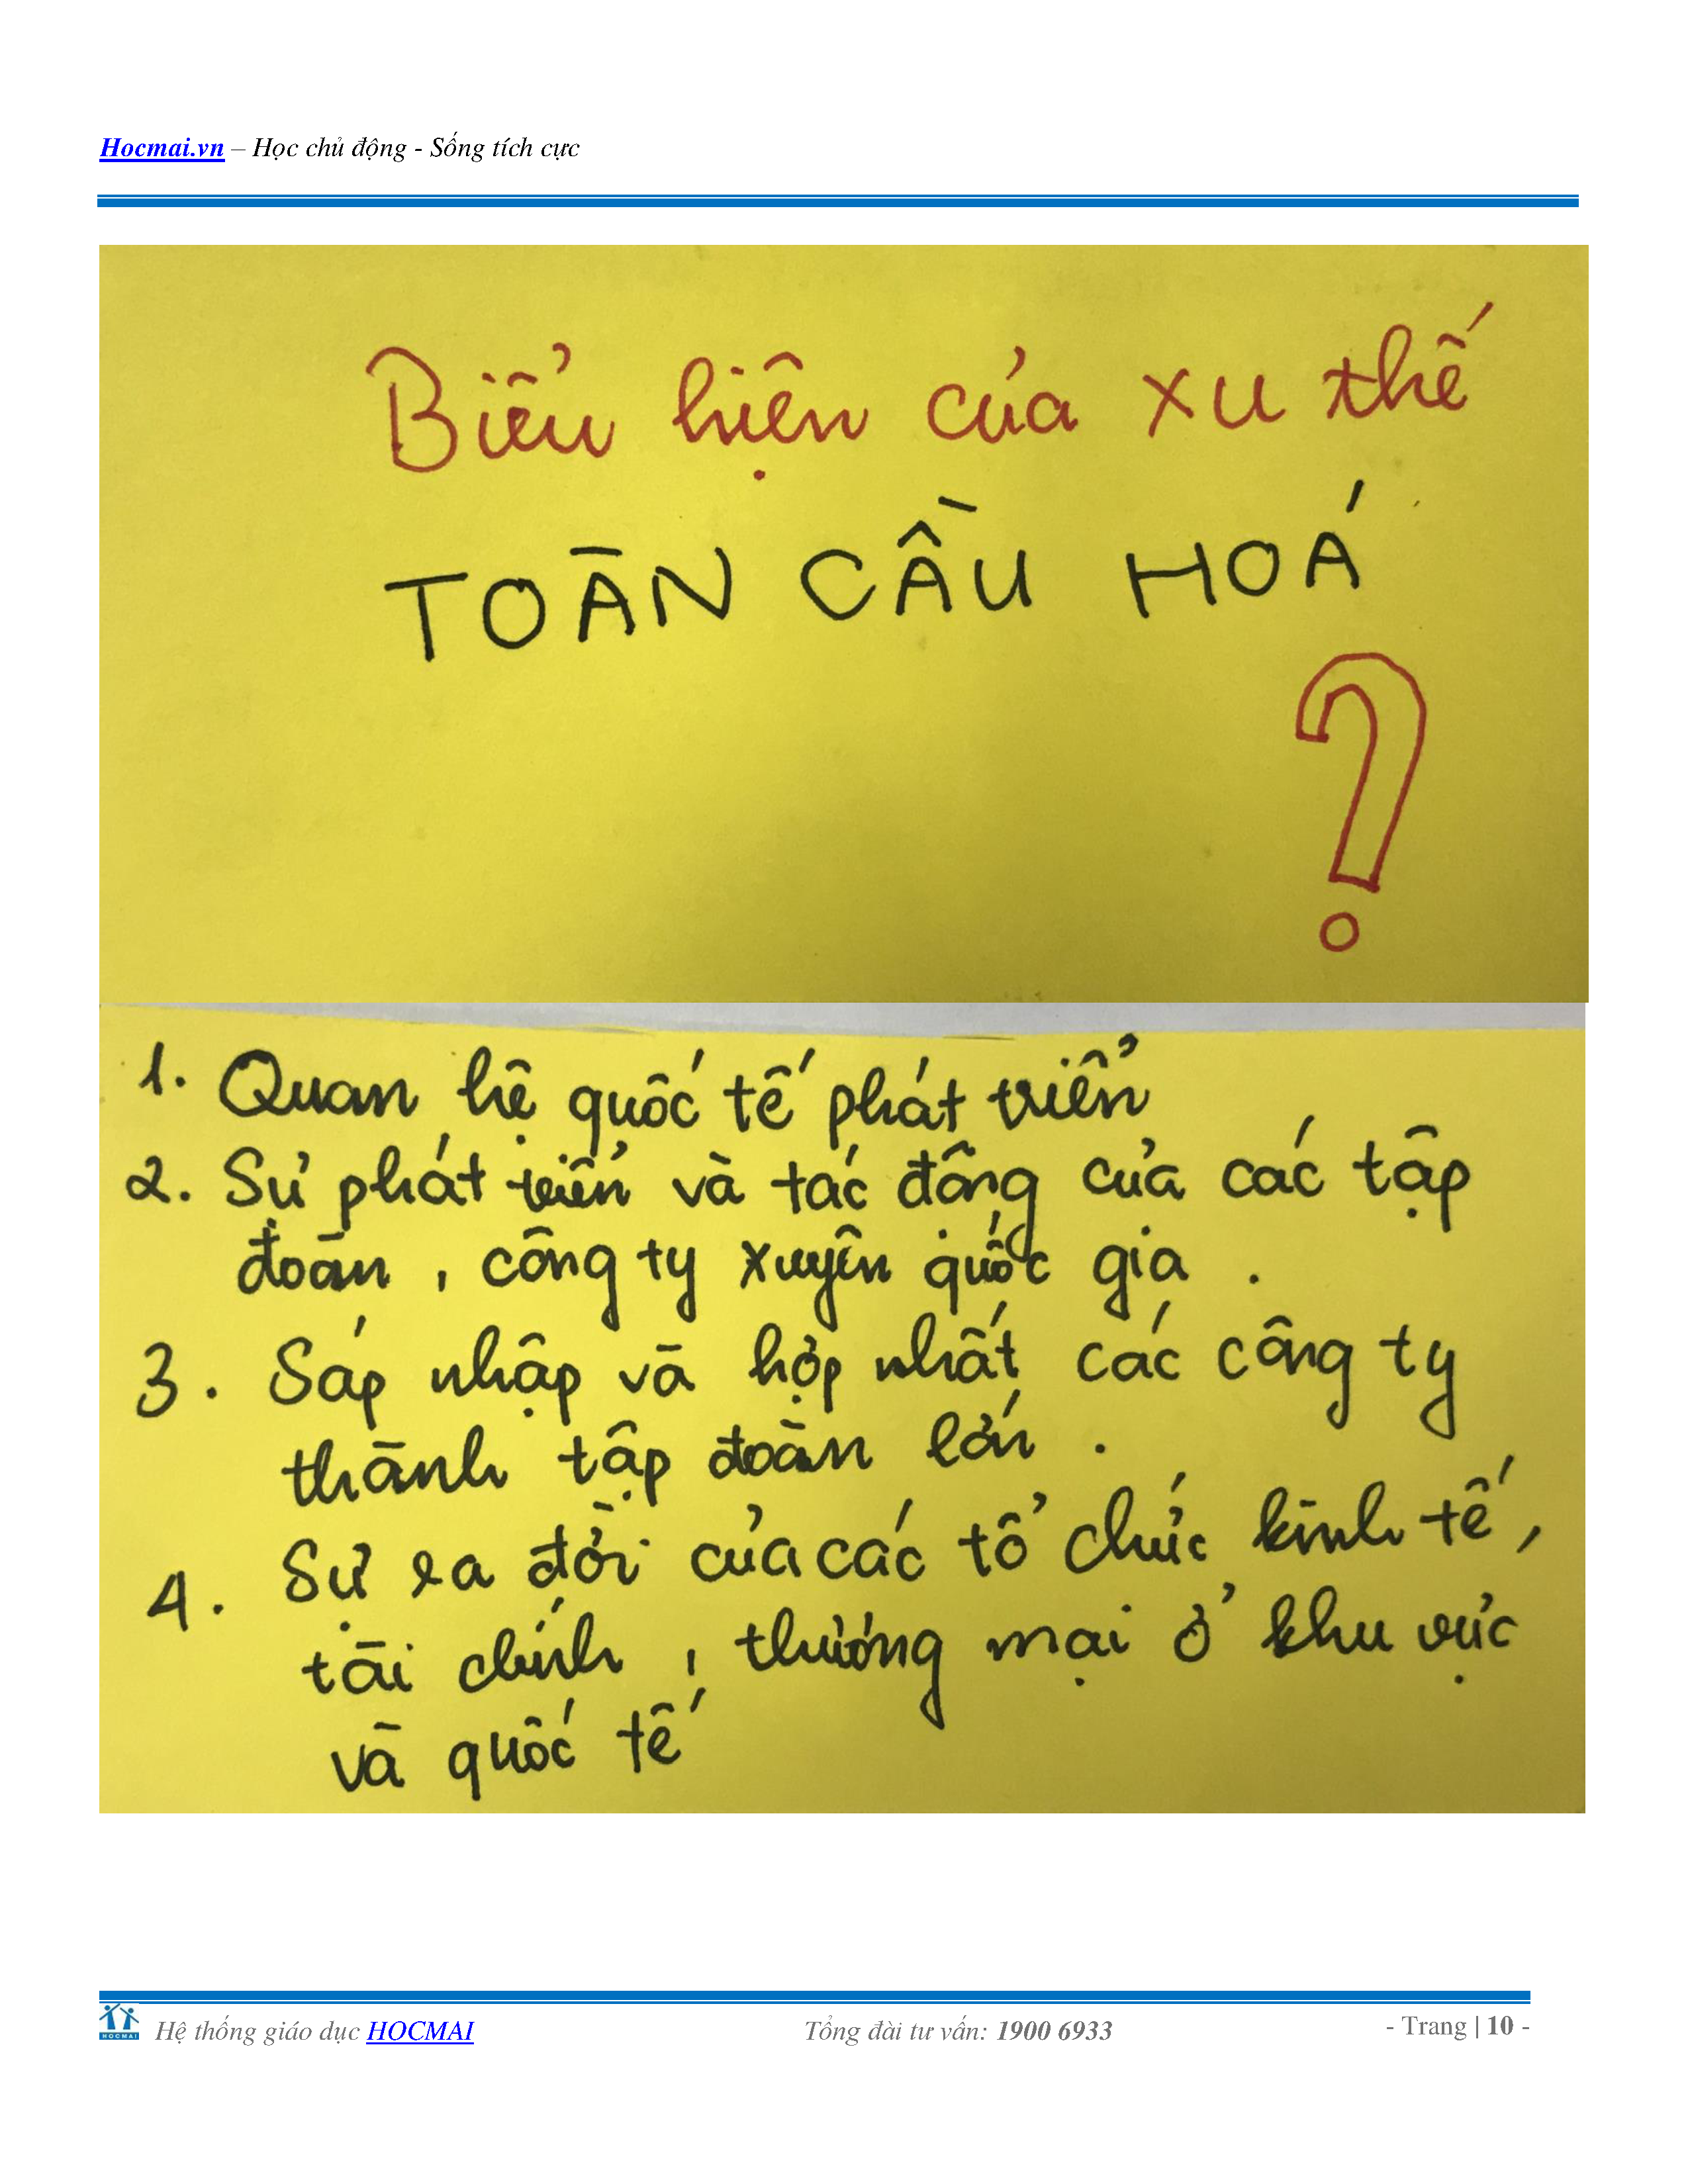 Hocmai.vn – Học chủ động - Sống tích cực
Biểu hiện của xu thế
TOÀN CẦU HOÁ
?
1. Quan hệ quốc tế phát triển
2. Sự phát triển và tác động của các tập
đoàn, công ty xuyên quốc gia.
3. Sáp nhập và hợp nhất các công ty
thành tập đoàn lớn.
4. Sự ra đời của các tổ chức kinh tế,
tài chính, thương mại ở khu vực
và quốc tế
HOCMAI
Hệ thống giáo dục HOCMAI
Tổng đài tư vấn: 1900 6933
- Trang | 10 -